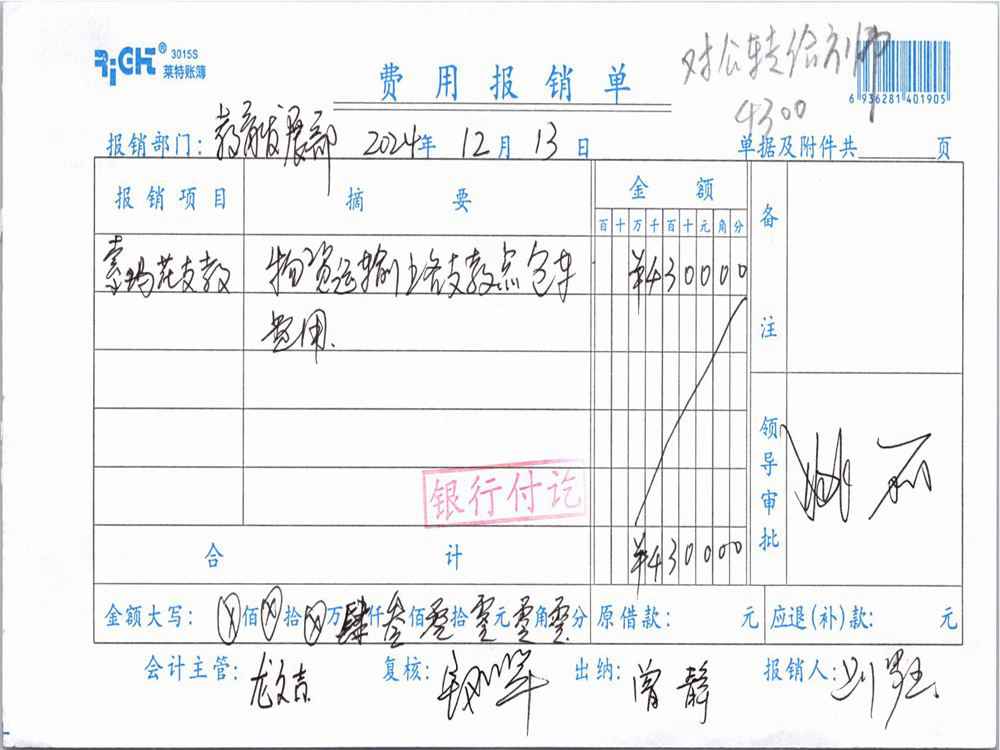 RiCH® 3015S
莱特账簿
费用报销单
对公转给
4300
6 936281 401905
报销部门：教育发展部 2024年 12月 13日 单据及附件共 页
报销项目 摘要 金额 备注
百十万千百十元角分
索玛花支教 物资运输至各支教点包车 ¥430000
费用.
银行付讫
领导审批
合计 ¥430000
金额大写：⊗佰⊗拾⊗万肆仟叁佰零拾零元零角零分 原借款： 元 应退(补)款： 元
会计主管：龙文吉 复核： 出纳：曾静 报销人：